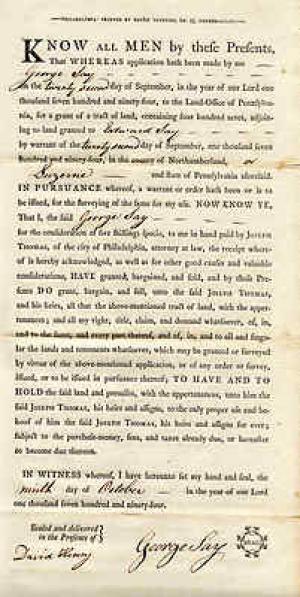 PHILADELPHIA: PRINTED BY
KNOW ALL MEN by these Presents,
That WHEREAS application hath been made by me
George Say
in the twenty second day of September, in the year of our Lord one
thousand seven hundred and ninety-four, to the Land-Office of Pennsylvania,
for a grant of a tract of land, containing four hundred acres, adjoining
to land granted to Edward Say
by warrant of the twenty second day of September, one thousand seven
hundred and ninety-four, in the county of Northumberland, or
Luzerne and state of Pennsylvania aforesaid.
IN PURSUANCE whereof, a warrant or order hath been or is to
be issued, for the surveying of the same for my use. NOW KNOW YE,
That I, the said George Say
for the consideration of five shillings specie, to me in hand paid by JOSEPH
THOMAS, of the city of Philadelphia, attorney at law, the receipt whereof
is hereby acknowledged, as well as for other good causes and valuable
considerations, HAVE granted, bargained, and sold, and by these Presents
DO grant, bargain, and sell, unto the said JOSEPH THOMAS,
and his heirs, all that the above-mentioned tract of land, with the appurtenances;
and all my right, title, claim, and demand whatsoever, of, in,
and to the same, and every part thereof, and of, in, and to all and singular
the lands and tenements whatsoever, which may be granted or surveyed
by virtue of the above-mentioned application, or of any order or survey,
issued, or to be issued in pursuance thereof; TO HAVE AND TO
HOLD the said land and premises, with the appurtenances, unto him the
said JOSEPH THOMAS, his heirs and assigns, to the only proper use and behoof
of him the said JOSEPH THOMAS, his heirs and assigns for ever;
subject to the purchase-money, fees, and taxes already due, or hereafter
to become due thereon.
IN WITNESS whereof, I have hereunto set my hand and seal, the
ninth day of October in the year of our Lord
one thousand seven hundred and ninety-four.
Sealed and delivered
in the Presence of
David Henry
George Say
SEAL